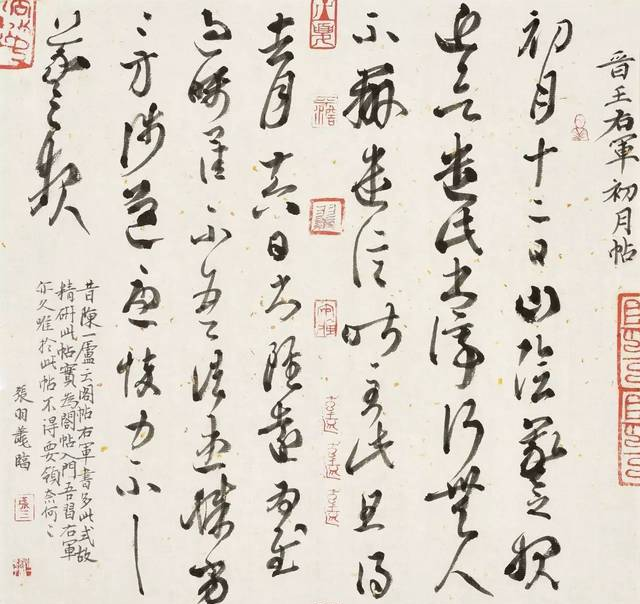 晉王右軍初月帖
初月十二日山陰羲之報
近欲遣此書停行無人
不辦遣信昨至此且得
去月十六日書雖遠為慰
過囑卿佳不吾諸患殊劣
〻方涉道憂悴力不具
羲之報
昔陳一廬云閣帖右軍書多此式故
精研此帖實為閣帖入門吾習右軍
亦久雖於此帖不得要領奈何〻
張羽臨